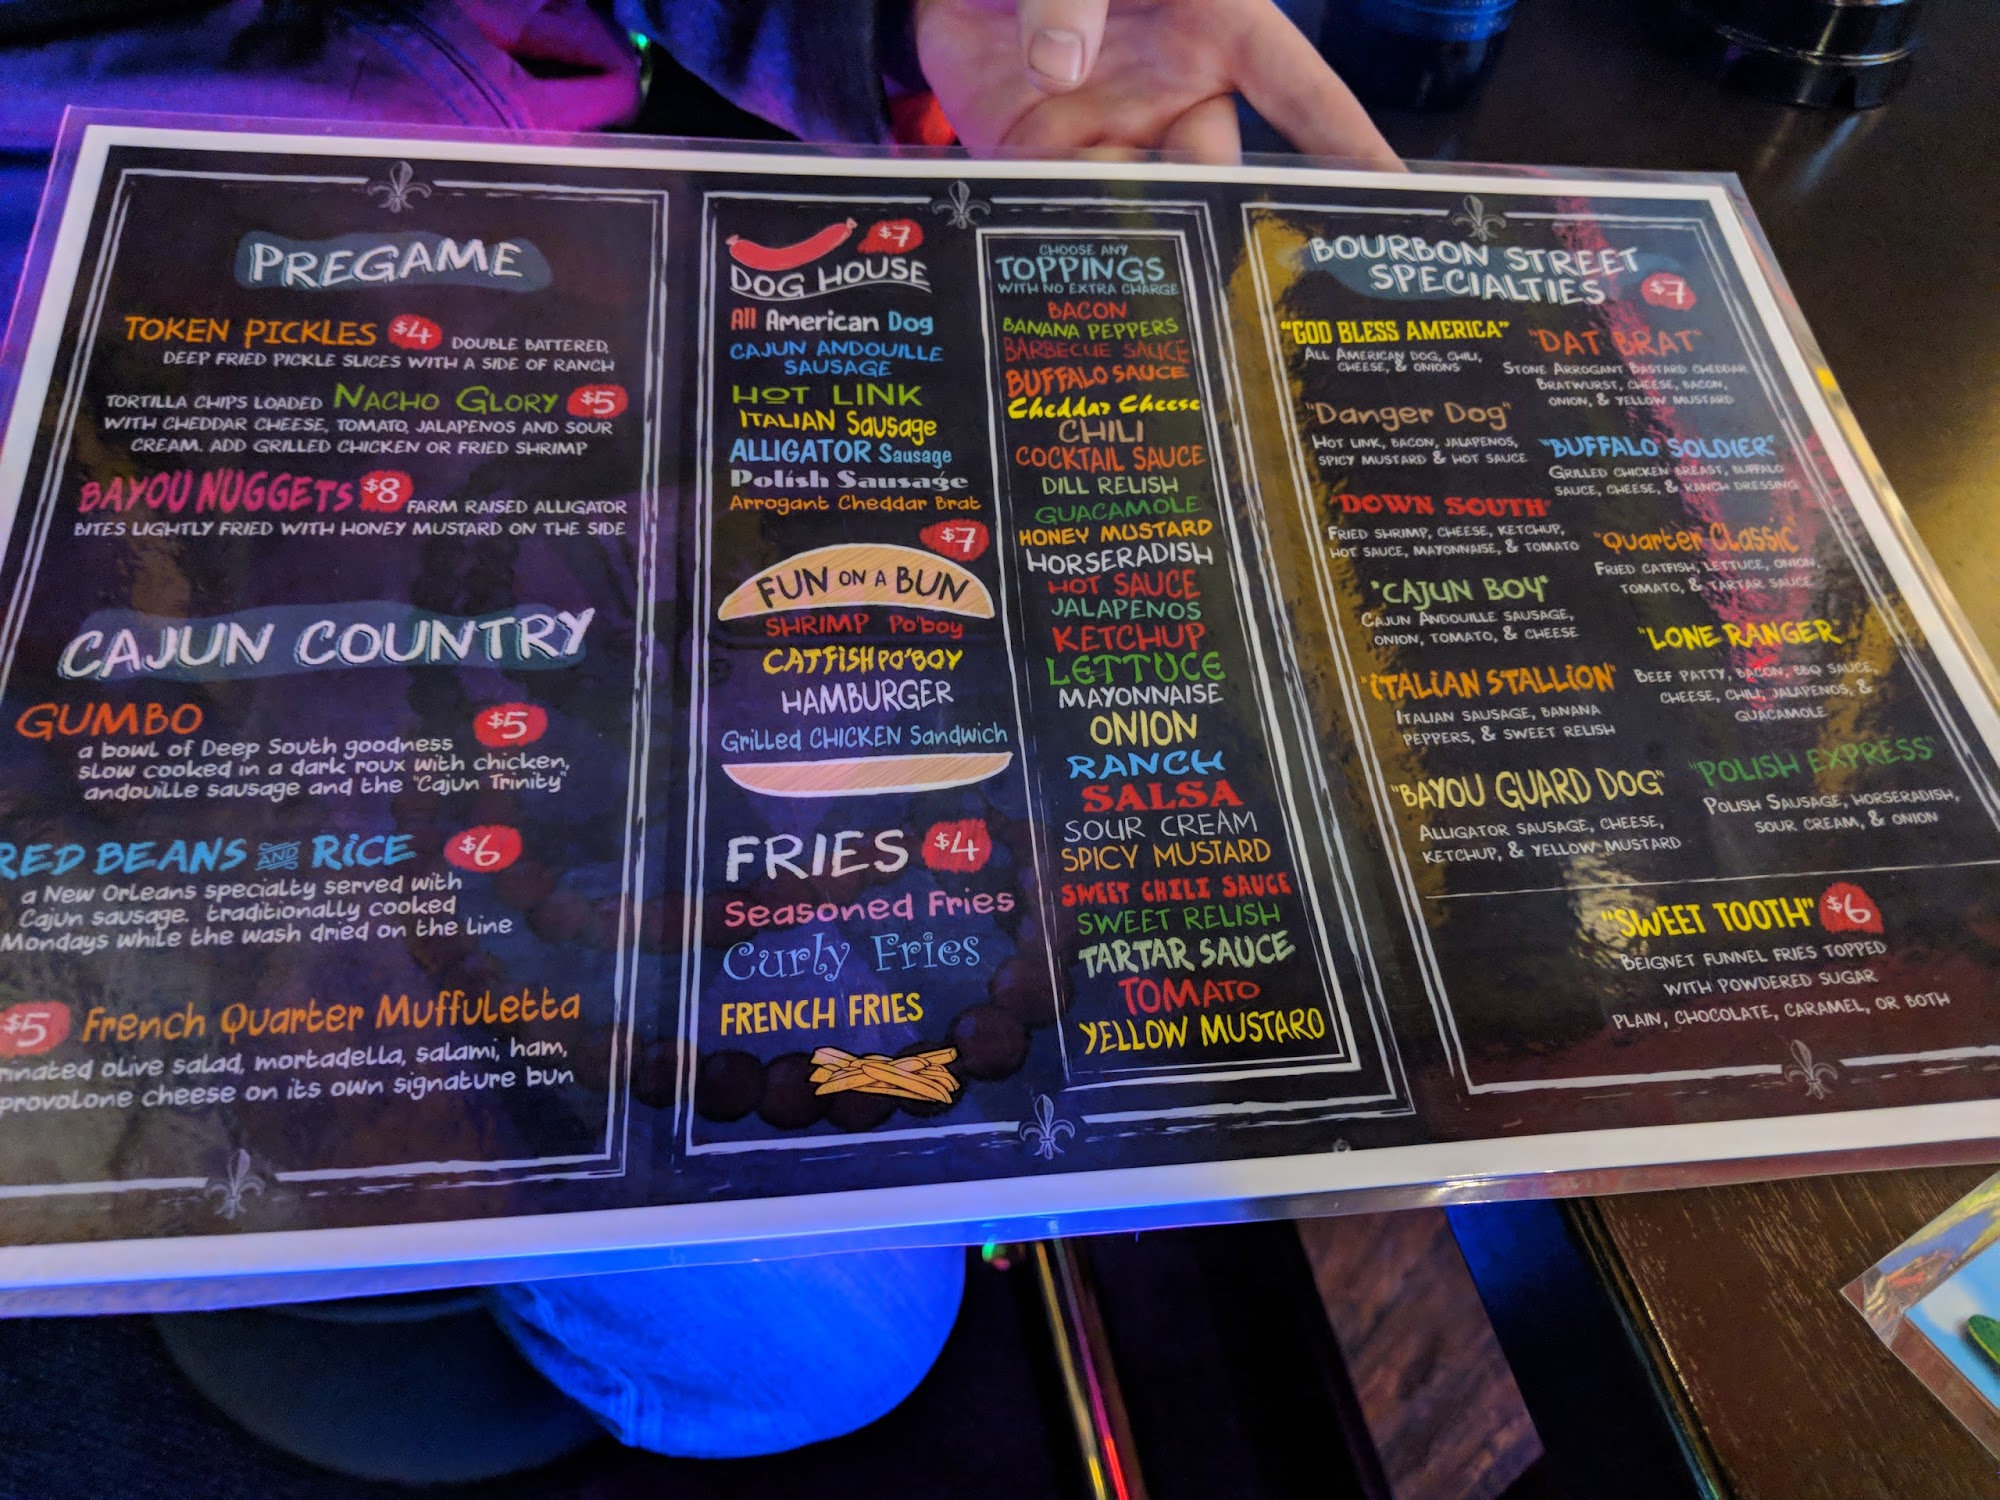 PREGAME
TOKEN PICKLES $4 DOUBLE BATTERED,
DEEP FRIED PICKLE SLICES WITH A SIDE OF RANCH
TORTILLA CHIPS LOADED NACHO GLORY $5
WITH CHEDDAR CHEESE, TOMATO, JALAPENOS AND SOUR
CREAM. ADD GRILLED CHICKEN OR FRIED SHRIMP
BAYOU NUGGETS $8 FARM RAISED ALLIGATOR
BITES LIGHTLY FRIED WITH HONEY MUSTARD ON THE SIDE
CAJUN COUNTRY
GUMBO $5
a bowl of Deep South goodness
slow cooked in a dark roux with chicken,
andouille sausage and the "Cajun Trinity"
RED BEANS AND RiCE $6
a New Orleans specialty served with
Cajun sausage. traditionally cooked
Mondays while the wash dried on the line
$5 French Quarter Muffuletta
olive salad, mortadella, salami, ham,
provolone cheese on its own signature bun
$7
DOG HOUSE
All American Dog
CAJUN ANDOUILLE
SAUSAGE
HOT LINK
ITALIAN Sausage
ALLIGATOR Sausage
Polish Sausage
Arrogant Cheddar Brat
$7
FUN ON A BUN
SHRIMP Po'boy
CATFISH PO'BOY
HAMBURGER
Grilled CHICKEN Sandwich
FRIES $4
Seasoned Fries
Curly Fries
FRENCH FRIES
CHOOSE ANY
TOPPINGS
WITH NO EXTRA CHARGE
BACON
BANANA PEPPERS
BARBECUE SAUCE
BUFFALO SAUCE
Cheddar Cheese
CHILI
COCKTAIL SAUCE
DILL RELISH
GUACAMOLE
HONEY MUSTARD
HORSERADISH
HOT SAUCE
JALAPENOS
KETCHUP
LETTUCE
MAYONNAISE
ONION
RANCH
SALSA
SOUR CREAM
SPICY MUSTARD
SWEET CHILI SAUCE
SWEET RELISH
TARTAR SAUCE
TOMATO
YELLOW MUSTARD
BOURBON STREET
SPECIALTIES $7
"GOD BLESS AMERICA"
ALL AMERICAN DOG, CHILI,
CHEESE, & ONIONS
"Danger Dog"
HOT LINK, BACON, JALAPENOS,
SPICY MUSTARD & HOT SAUCE
"DOWN SOUTH"
FRIED SHRIMP, CHEESE, KETCHUP,
HOT SAUCE, MAYONNAISE, & TOMATO
"CAJUN BOY"
CAJUN ANDOUILLE SAUSAGE,
ONION, TOMATO, & CHEESE
"iTALiAN STALLiON"
ITALIAN SAUSAGE, BANANA
PEPPERS, & SWEET RELISH
"BAYOU GUARD DOG"
ALLIGATOR SAUSAGE, CHEESE,
KETCHUP, & YELLOW MUSTARD
"DAT BRAT"
STONE ARROGANT BASTARD CHEDDAR
BRATWURST, CHEESE, BACON,
ONION, & YELLOW MUSTARD
"BUFFALO SOLDIER"
GRILLED CHICKEN BREAST, BUFFALO
SAUCE, CHEESE, & RANCH DRESSING
"Quarter Classic"
FRIED CATFISH, LETTUCE, ONION,
TOMATO, & TARTAR SAUCE
"LONE RANGER"
BEEF PATTY, BACON, BBQ SAUCE,
CHEESE, CHILI, JALAPENOS, &
GUACAMOLE
"POLISH EXPRESS"
POLISH SAUSAGE, HORSERADISH,
SOUR CREAM, & ONION
"SWEET TOOTH" $6
BEIGNET FUNNEL FRIES TOPPED
WITH POWDERED SUGAR
PLAIN, CHOCOLATE, CARAMEL, OR BOTH